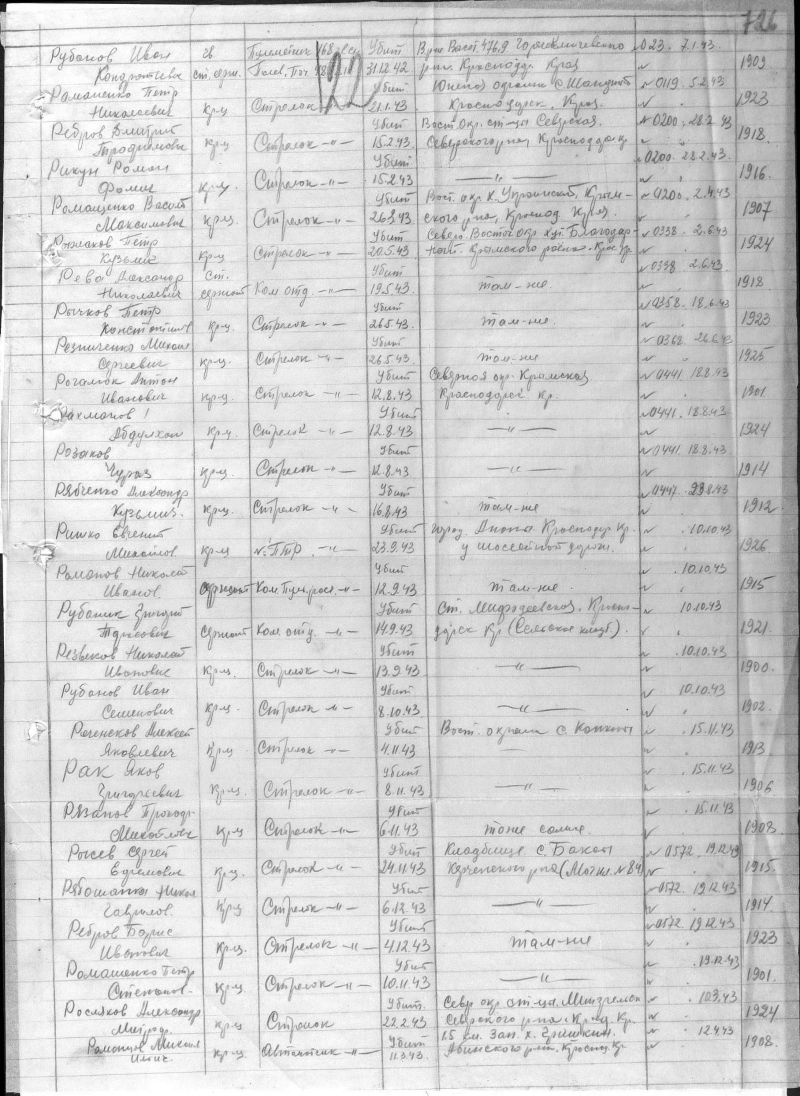 726
Рубанов Иван гв Пулеметчик 168 Убит В рне Выст. 476,9 Горяеключевского 023. 7.1.43.
Кондратьевич ст. серж. Полев. Поч 31.12.42 р-на. Краснодар Края 1909
122
Романенко Петр Убит Южная окраина с. Шапциг 0119. 5.2.43
Николаевич кр-ц Стрелок 21.1.43 Краснодарск. Края. 1923
Ребров Дмитрий Убит Вост. окр. ст-цы Северская. 0200. 28.2.43
Трофимович кр-ц Стрелок -"- 15.2.43 Северского р-на Краснод. кр 1918
Рикун Роман Убит 0200. 28.2.43.
Фомич кр-ц. Стрелок -"- 15.2.43 —"— 1916
Ромащенко Васил Убит Вост. окр. х. Украинский, Крым- 0200. 2.4.43
Максимович кр-ц. Стрелок -"- 26.3.43 ского р-на, Краснод. Края. 1907
Петр Убит Северо. Восточ окр. хут. Благодар- 0338. 2.6.43
Кузьмич кр-ц Стрелок -"- 20.5.43 ный. Крымского района. Кр. 1924
Рева Александр ст. Убит 0338. 2.6.43.
Николаевич сержант Ком. отд. -"- 19.5.43 там-же. 1918
Рычков Петр Убит 0358. 18.6.43
Константинов кр-ц. Стрелок -"- 26.5.43 там-же. 1923
Резниченко Михаил Убит 0368. 26.6.43
Сергеевич кр-ц. Стрелок -"- 26.5.43. там-же 1925
Рогалюк Антон Убит Северная окр. Крымская 0441. 18.8.43
Иванович кр-ц. Стрелок -"- 12.8.43 Краснодарск кр. 1901
Рахманов Убит 0441. 18.8.43
Абдулхай кр-ц. Стрелок -"- 12.8.43 —"— 1924
Розаков Убит 0441. 18.8.43
Чураз кр-ц Стрелок -"- 12.8.43 —"— 1914
Рябченко Александр Убит 0447. 23.8.43
Кузьмич. кр-ц. Стрелок -"- 16.8.43 там-же 1912
Ришко Евгений Убит город. Анапа Краснодар. Кр. . 10.10.43
Михайлов кр-ц №1 ПТР -"- 23.9.43 у шоссейной дороги. 1926
Романов Николай Убит . 10.10.43
Иванов. сержант Ком. Пул. расч. -"- 12.9.43 там-же. 1915
Рубаник Григорий Убит Ст. Мефодеевская. Красно- 10.10.43
сержант Ком. отд -"- 14.9.43 дарск кр (Сельское кладб). 1921
Резвяков Николай Убит . 10.10.43
Иванович кр-ц. Стрелок -"- 13.9.43 —"— 1900
Рубанов Иван Убит 10.10.43
Семенович кр-ц. Стрелок -"- 8.10.43 —"— 1902
Алексей Убит Вост. окраина с. . 15.11.43
Яковлевич кр-ц Стрелок -"- 4.11.43 — 1913
Рак Яков Убит . 15.11.43
Григорьевич кр-ц. Стрелок -"- 8.11.43 —"— 1906
Рязанов Убит . 15.11.43
Михайлович кр-ц Стрелок -"- 6.11.43 тоже самое 1908
Рысев Сергей Убит Кладбище с. Баксы 0572. 19.12.43
Ефремович кр-ц. Стрелок -"- 24.11.43 Керченского р-на (Могил. №84) 1915
Никол Убит 0572. 19.12.43
Гаврилов. кр-ц Стрелок -"- 6.12.43 —"— 1914
Ребров Борис Убит 0572 19.12.43
Иванович кр-ц. Стрелок -"- 4.12.43 там-же 1923
Ромашенко Петр Убит . 19.12.43
Степанов. кр-ц. Стрелок -"- 10.11.43 —"— 1901
Росляков Александр Убит. Север окр ст-цы Мингрельск . 10.3.43
Митроф. кр-ц. Стрелок 22.2.43 Северского р-на. Кр-д. Кр. 1924
Михаил Убит 1.5 км. Зап. х. Гришкин. . 12.4.43
кр-ц. Автоматчик -"- 11.3.43 Абинского р-на. Краснод. Кр 1908.